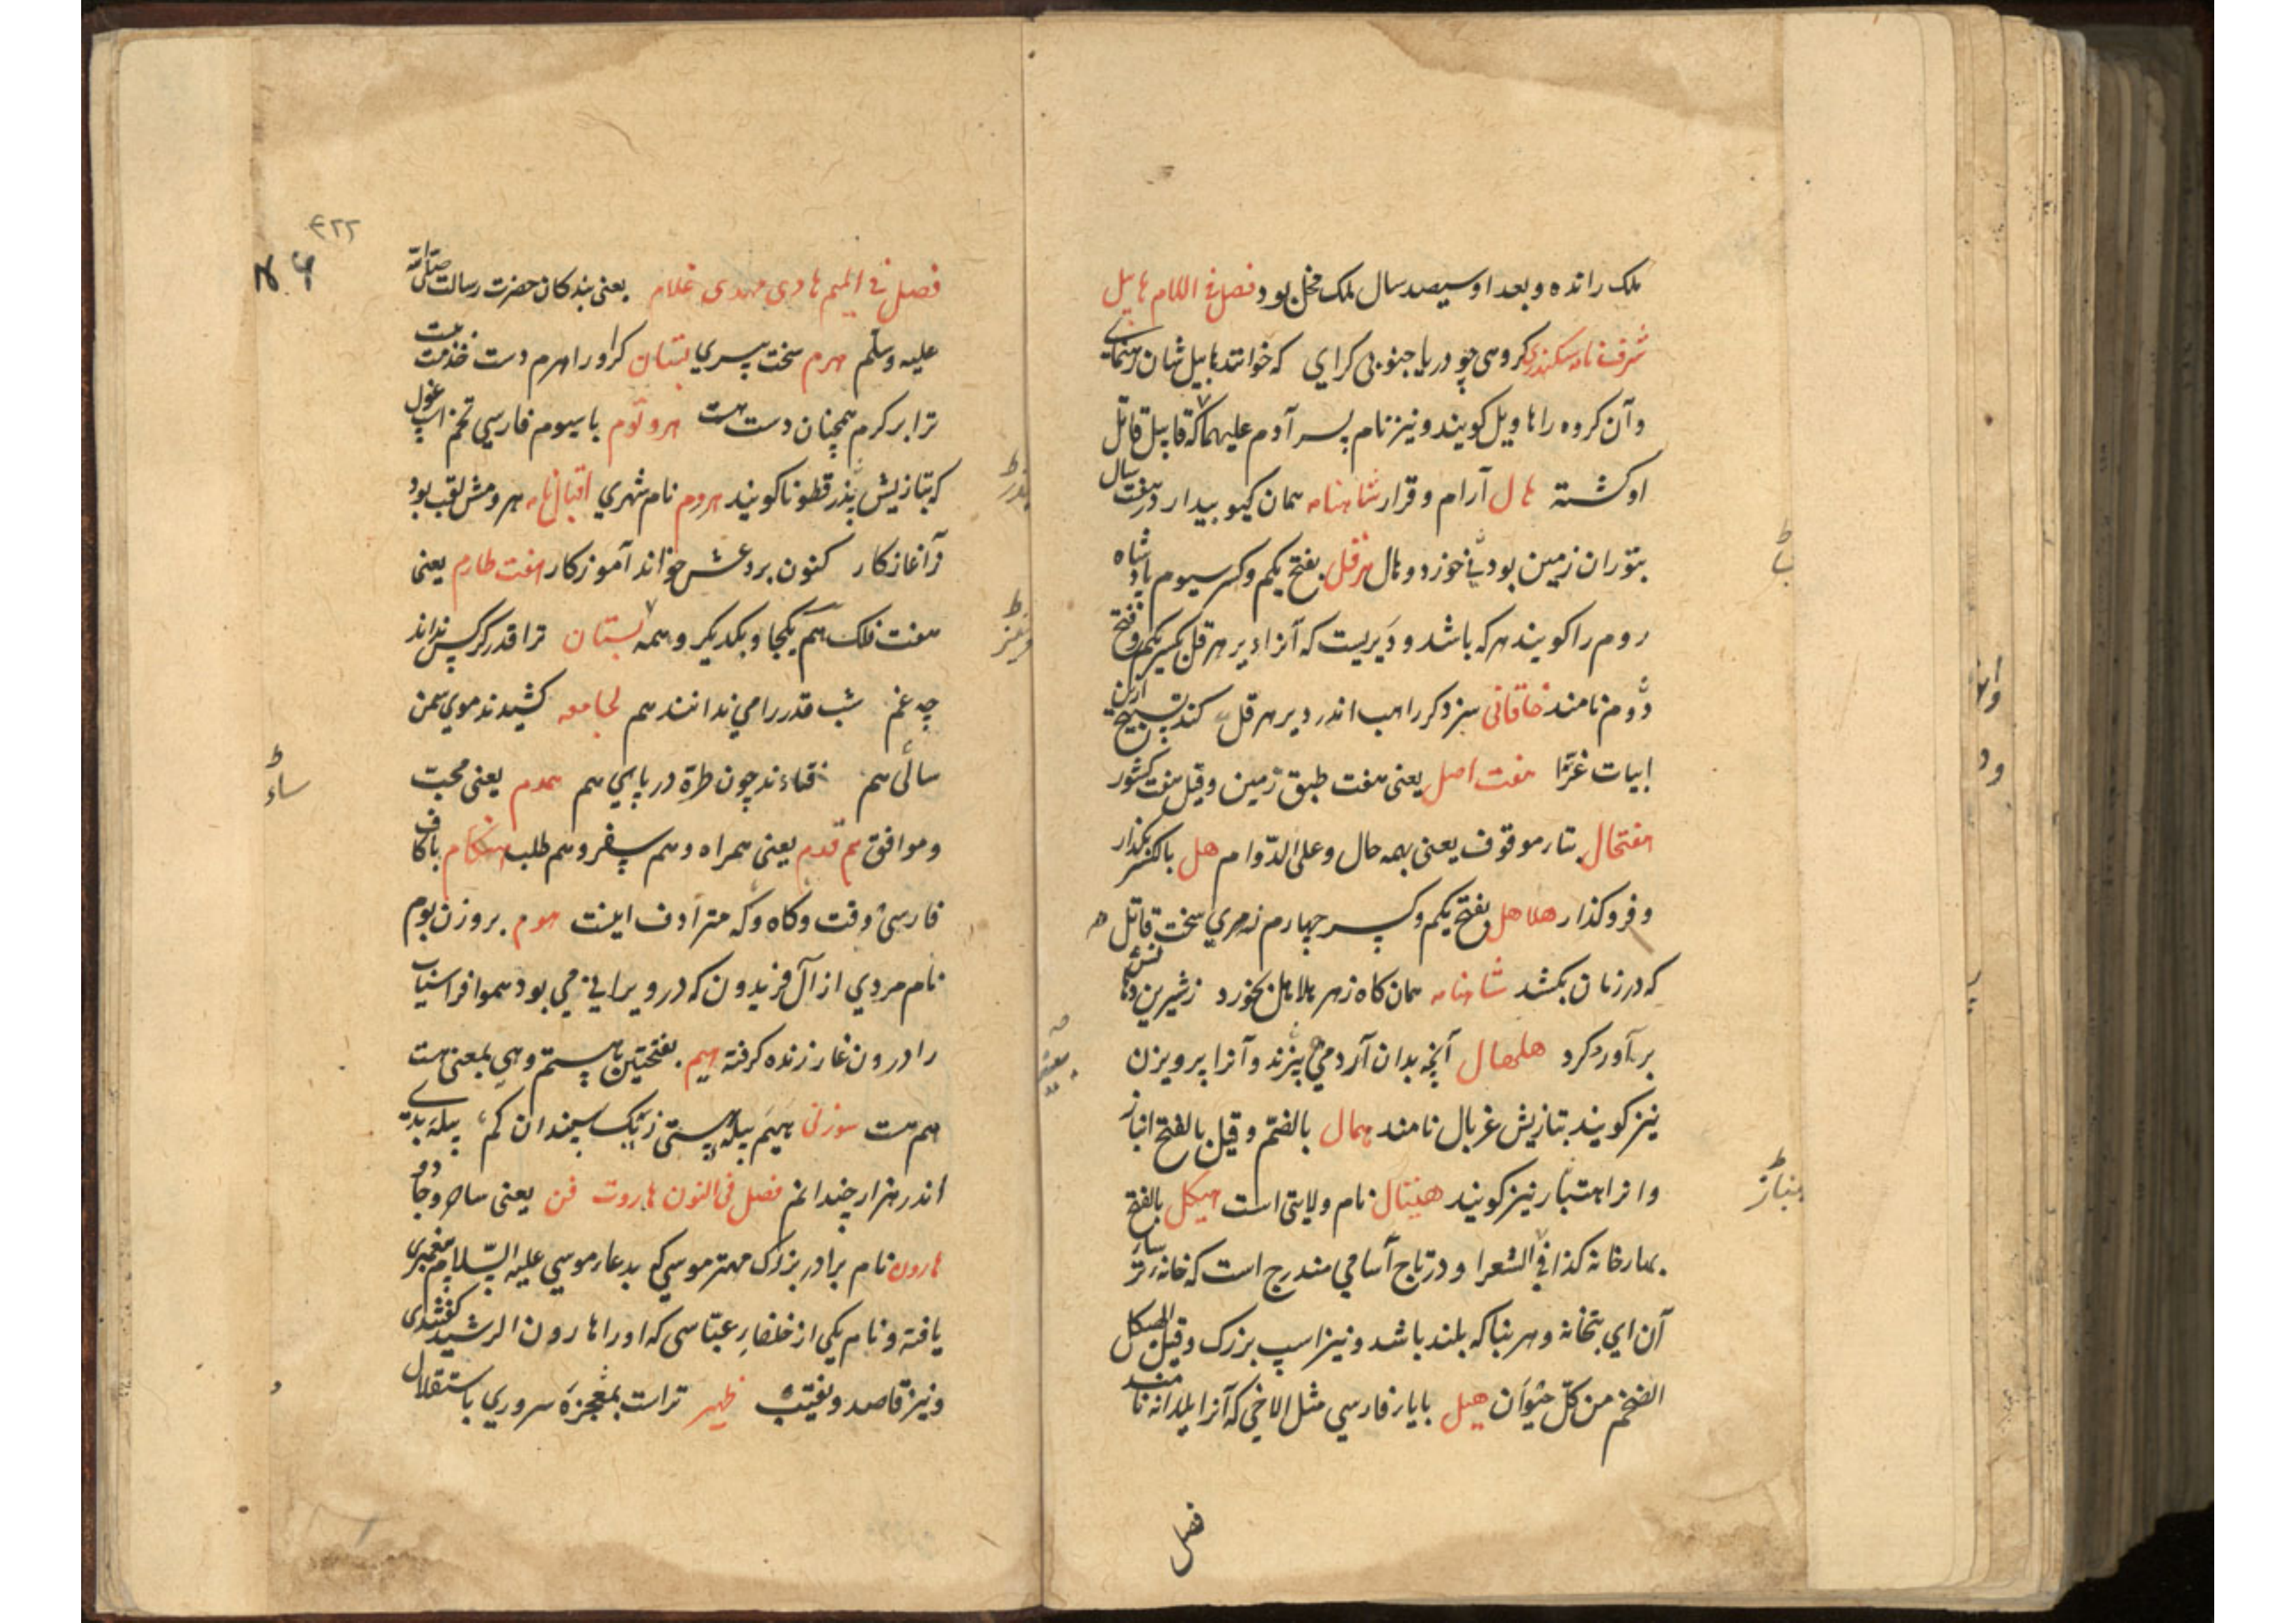 ملک رانده و بعد او سیصد سال ملک مخل بود فصل فی اللام هابیل
شرف نامه سکندری کروهی چو دریا جنوبی کرای که خوانند هابیل شان رهنمای
و آن کروه را هاویل کویند و نیز نام پسر آدم علیهما که قابیل قاتل
او کشته هال آرام و قرار شاهنامه همان کیو بیدار در هفت سال
بتوران زمین بود بی خورد و هال هرقل بفتح یکم و کسر سیوم پادشاه
روم را کویند هر که باشد و دیریست که آنرا دیر هرقل بکسر یکم و فتح
دوم نامند خاقانی سزد کر راهب اندر دیر هرقل کند تسبیح ازین
ابیات غرا هفت اصل یعنی هفت طبق زمین و قیل هفت کشور
هفتحال بتار موقوف یعنی بهمه حال و علی الدوام هل بالکسر بکذار
و فرو کذار هلاهل بفتح یکم و کسر چهارم زهری سخت قاتل
که در زمان بکشد شاهنامه همان کاه زهر هلاهل بخورد ز شیرین
برآورد کرد هلهال آنچه بدان آرد می بیزند و آنرا پرویزن
نیز کویند بتازیش غربال نامند همال بالضم و قیل بالفتح انباز
و انرا همتبار نیز کویند هیتال نام ولایتی است هیکل بالفتح
بهارخانه کذا فی الشعرا و در تاج آسامی مندرج است که خانه ترسار
آن ای بتخانه و هر بنا که بلند باشد و نیز اسپ بزرک و قیل الهیکل
الضخم من کل حیوان هیل بایار فارسی مثل الاخی که آنرا یلدانه نامند
فصل
۴۲۲
فصل فی المیم هادی مهدی غلام یعنی بندکان حضرت رسالت صلی الله
علیه وسلم هرم سخت پیری بستان کرا و را هرم دست خدمت ببست
ترا بر کرم همچنان دست هست هروتوم با سیوم فارسی تخم اسپغول
که بتازیش بذر قطونا کویند هروم نام شهری اقبال نامه هرومش لقب بود
ز آغاز کار کنون بردعش خواند آموزکار هفت طارم یعنی
هفت فلک هم یکجا و یکدیکر و همه بستان ترا قدر کر کس نداند
چه غم شب قدر را می ندانند هم لجامعه کشیدند موی سمن
سائی هم فتادند چون طرة در پای هم همدم یعنی محبت
و موافق هم قدم یعنی همراه و هم سفر و هم طلب هنکام با کاف
فارسی وقت و کاه و که مترادف اینست هوم بر وزن بوم
نام مردی از آل فریدون که در ویرانی می بود هموا فراسیاب
را درون غار زنده کرفته هیم بفتحتین هستم و هی بمعنی هست
هم هست سوزنی
اندر هزار چند انم فصل فی النون هاروت فن یعنی ساحر و جادو
هارون نام برادر بزرک مهتر موسی که بدعار موسی علیه السلام پیغمبری
یافته و نام یکی از خلفار عباسی که او را هارون الرشید کفتندی
و نیز قاصد و نقیب ظهیر تراست معجزه سروری باستقلال